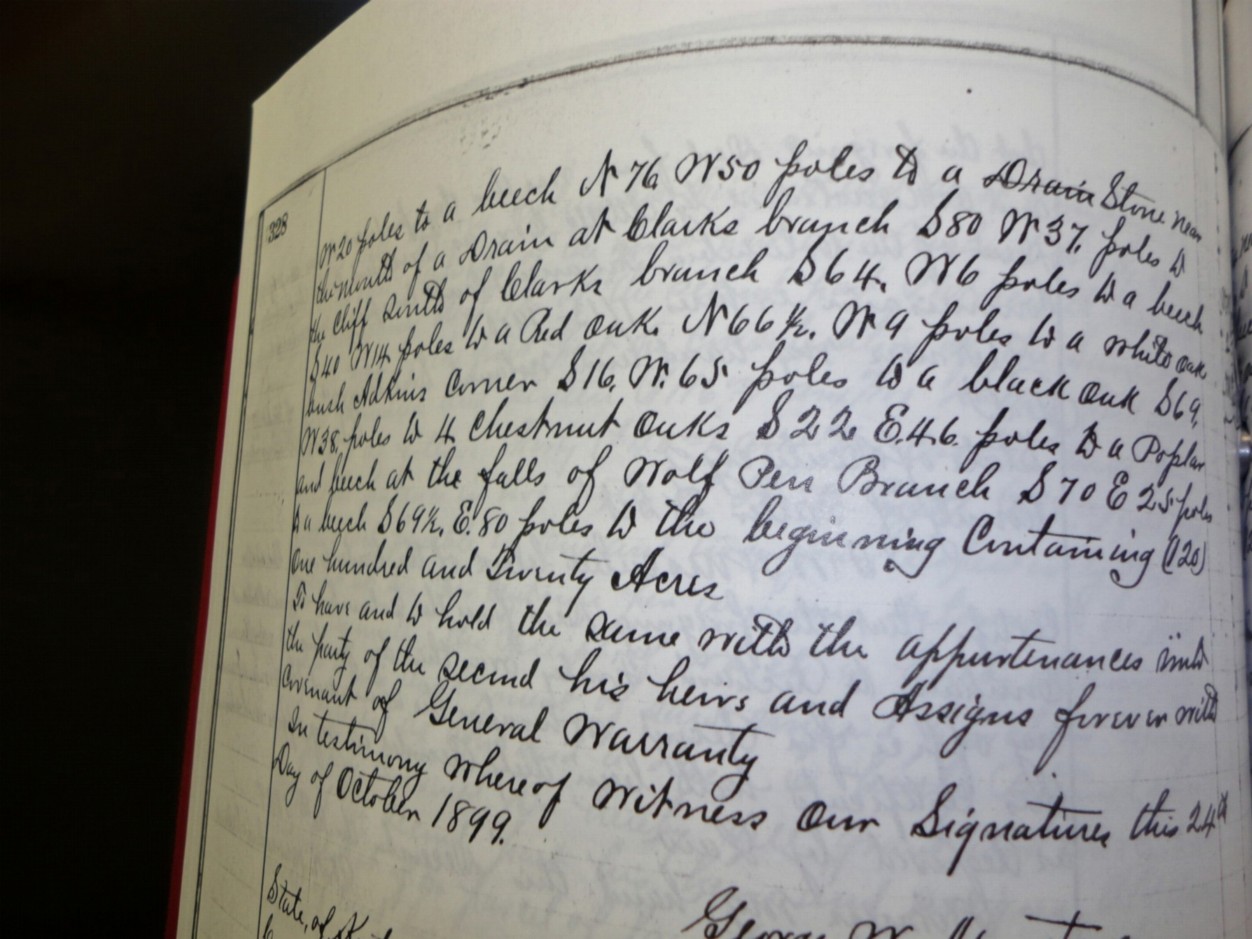 328
W 20 poles to a beech N 76 W 50 poles to a Drain Stone near
the mouth of a Drain at Clarks branch S 80 W 37 poles to
the cliff South of Clarks branch S 64. W 6 poles to a beech
S 40 W 14 poles to a Red oak N 66 ½. W 9 poles to a white oak
bush Adkins corner S 16. W. 65 poles to a black oak S 69.
W 38. poles to 4 chestnut oaks S 22 E. 46 poles to a Poplar
and beech at the falls of Wolf Pen Branch S 70 E 25 poles
to a beech S 69 ½. E. 80 poles to the beginning Containing (120)
One hundred and Twenty Acres
To have and to hold the same with the appurtenances unto
the party of the second his heirs and Assigns forever with
Covenant of General Warranty
In testimony whereof witness our Signatures this 24th
Day of October 1899.
State, of
George W.